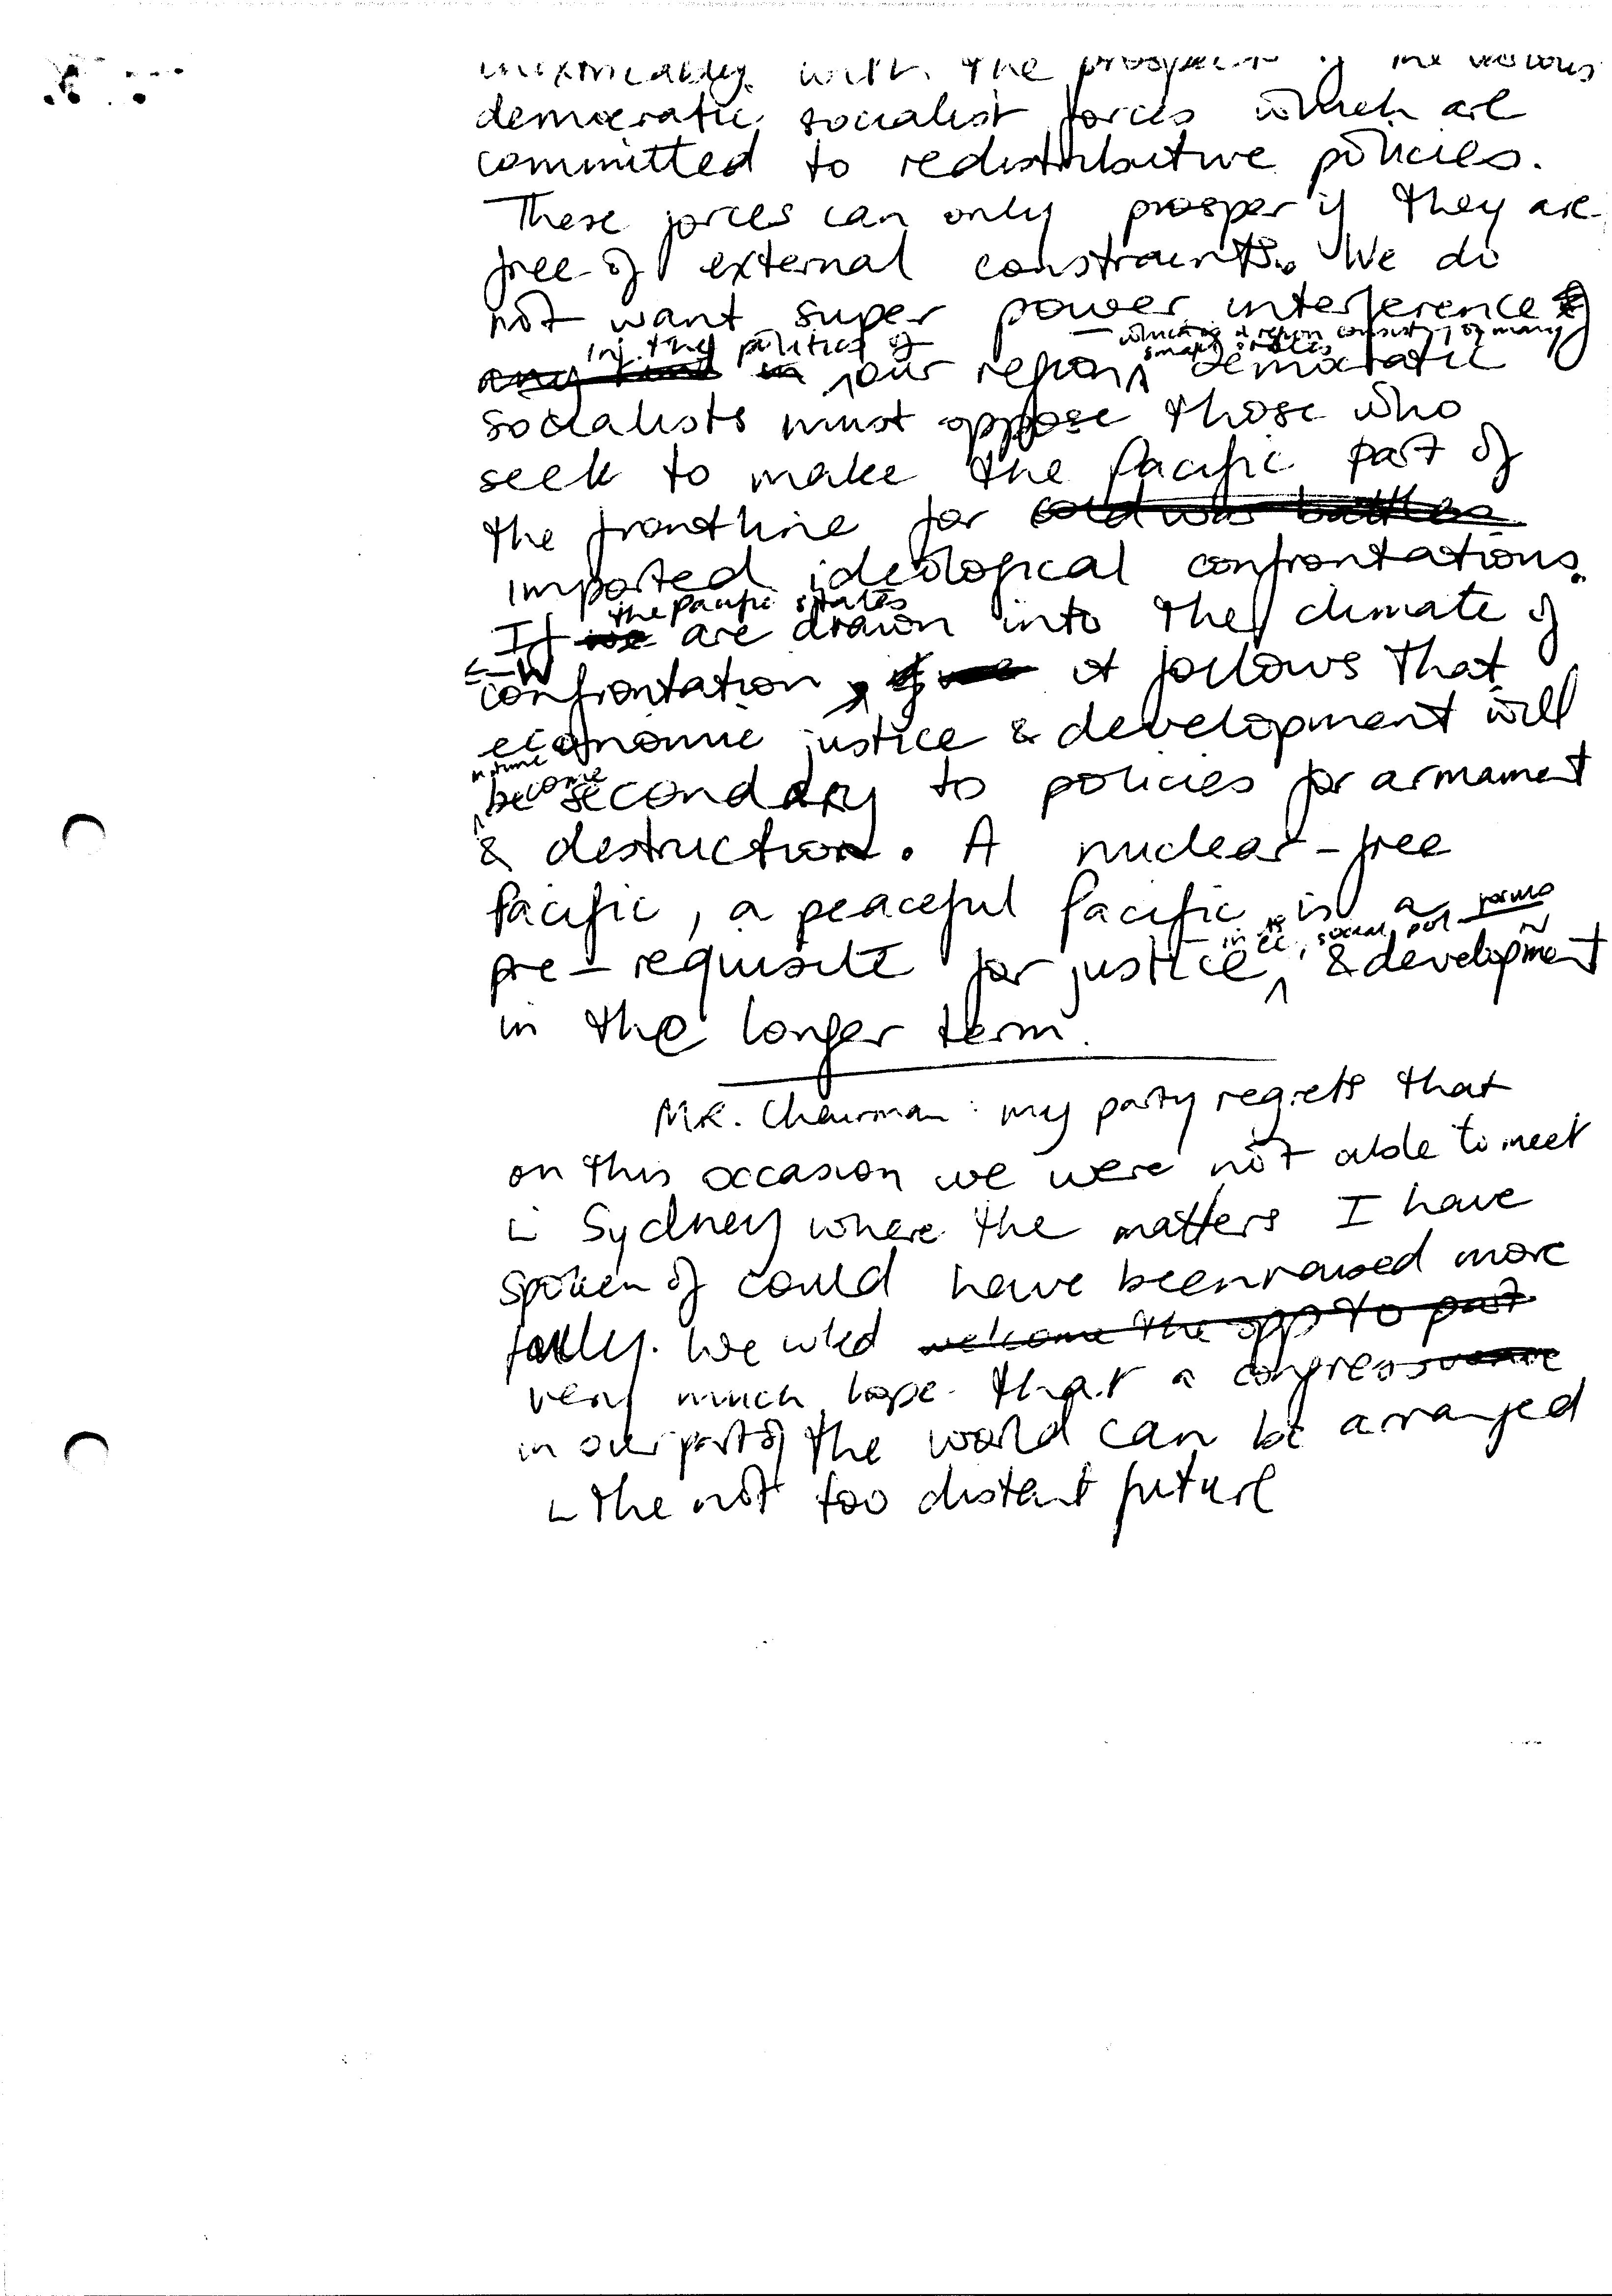 inextricably with the prospects of the various
democratic socialist forces which are
committed to redistributive policies.
These forces can only prosper if they are
free of external constraints. We do
not want super power interference of
in the politics of – which is a region consisting of many
small states
any kind in our region democratic
socialists must oppose those who
seek to make the Pacific part of
the frontline for cold war battles
imported ideological confrontations.
the pacific states
If we are drawn into the climate of
confrontation, it follows that
economic justice & development will
in time
become secondary to policies for armament
& destruction. A nuclear-free
Pacific, a peaceful Pacific is a
in its ec., social, pol forms
pre-requisite for justice & development
in the longer term.
MR. Chairman: my party regrets that
on this occasion we were not able to meet
in Sydney where the matters I have
spoken of could have been raised more
fully. We wld welcome the opp to part
very much hope that a congress
in our part of the world can be arranged
in the not too distant future